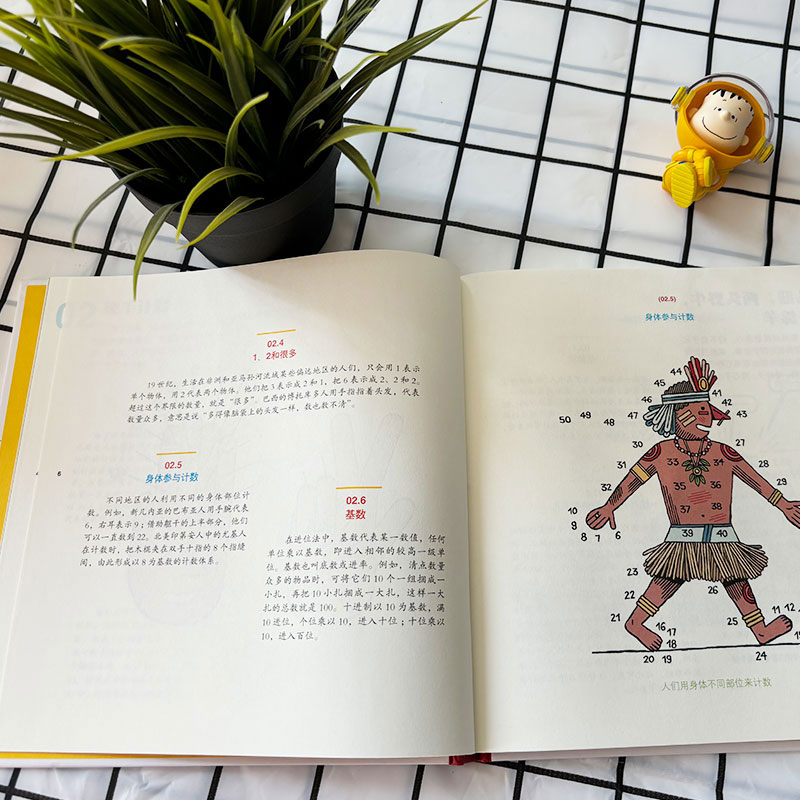 02.4
1、2和很多
19 世纪，生活在非洲和亚马孙河流域某些偏远地区的人们，只会用 1 表示
单个物体，用 2 代表两个物体。他们把 3 表示成 2 和 1，把 6 表示成 2、2 和 2。
超过这个界限的数量，就是“很多”。巴西的博托库多人用手指指着头发，代表
数量众多，意思是说“多得像脑袋上的头发一样，数也数不清”。
6
02.5
身体参与计数
不同地区的人利用不同的身体部位计
数。例如，新几内亚的巴布亚人用手腕代表
6，右耳表示 9；借助躯干的上半部分，他们
可以一直数到 22。北美印第安人中的尤基人
在计数时，把木棍夹在双手十指的 8 个指缝
间，由此形成以 8 为基数的计数体系。
02.6
基数
在进位法中，基数代表某一数值，任何
单位乘以基数，即进入相邻的较高一级单
位。基数也叫底数或进率。例如，清点数量
众多的物品时，可将它们 10 个一组捆成一
小扎，再把 10 小扎捆成一大扎，这样一大
扎的总数就是 100。十进制以 10 为基数，满
10 进位，个位乘以 10，进入十位；十位乘以
10，进入百位。
(02.5)
身体参与计数
44 45 41
46 42
47 43
50 49 48
30 27
31 33 35 28
32 34 36 29
38
10
9
8 7 6
37
39 40
23
22 26
21 25 11 12
16
17
18
20 19 24
人们用身体不同部位来计数